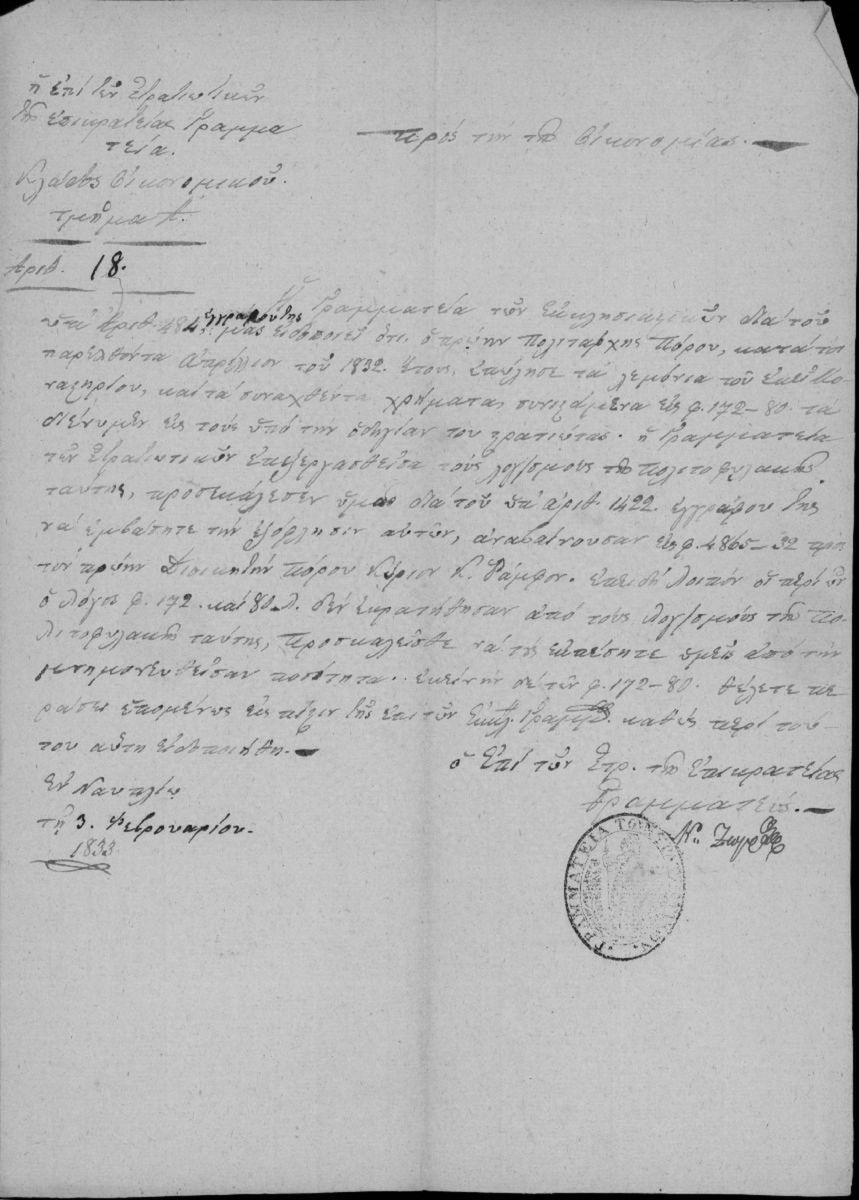 ἡ ἐπὶ τῶν Στρατιωτικῶν
τῆς ἐπικρατείας Γραμμα
τεία.
Κλάσις Οἰκονομικοῦ.
τμῆμα Α.
Ἀριθ. 18.
πρὸς τὴν τῆς Οἰκονομίας.
Ἡ Γραμματεία τῶν Ἐκκλησιαστικῶν διὰ τοῦ
ὑπ' ἀριθ. 484 ἐγγράφου της μᾶς εἰδοποιεῖ ὅτι ὁ πρώην Πολιτάρχης Πόρου, κατὰ τὸν
παρελθόντα Ἀπρίλλιον τοῦ 1832. ἔτους, ἐπώλησε τὰ λεμόνια τοῦ ἐκεῖ Μο-
ναστηρίου, καὶ τὰ συναχθέντα χρήματα, συνιστάμενα εἰς φ. 172-80. τὰ
διένυμεν εἰς τοὺς ὑπὸ τὴν ὁδηγίαν του στρατιώτας. ἡ Γραμματεία
τῶν Στρατιωτικῶν ἐπεξεργασθεῖσα τοὺς λογ/σμοὺς τῆς πολιτοφυλακῆς
ταύτης, προσεκάλεσεν ὑμᾶς διὰ τοῦ ὑπ' ἀριθ. 1422. ἐγγράφου της
νὰ ἐμβάσητε τὴν ἐξόφλησιν αὐτῶν, ἀναβαίνουσαν εἰς φ. 4865-32 πρὸς
τὸν πρώην Διοικητὴν Πόρου Κύριον Κ. Ράμφον. ἐπειδὴ λοιπὸν οἱ περὶ ὧν
ὁ λόγος φ. 172. καὶ 80. λ. δὲν ἐκρατήθησαν ἀπὸ τοὺς λογ/σμοὺς τῆς πο-
λιτοφυλακῆς ταύτης, προσκαλεῖσθε νὰ τὰς ἐκπέσητε ὑμεῖς ἀπὸ τὴν
μνημονευθεῖσαν ποσότητα. ἐκείνην δὲ τῶν φ. 172-80. θέλετε πε-
ράσει ἑπομένως εἰς πίστιν τῆς ἐπὶ τῶν Ἐκκλ. Γραμμ. καθὼς περὶ τού-
του αὕτη εἰδοποιήθη.
Ἐν Ναυπλίῳ
τῇ 3. Φεβρουαρίου.
1833
ὁ Ἐπὶ τῶν Στρ. τῆς Ἐπικρατείας
Γραμματεύς.
ΓΡΑΜΜΑΤΕΙΑ ΤΩΝ